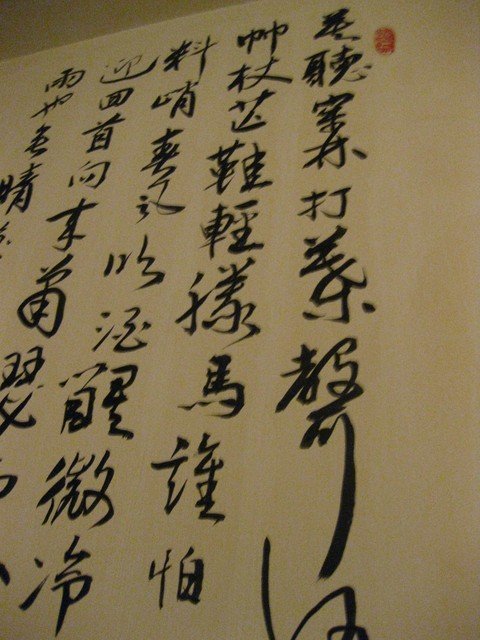 莫聽穿林打葉聲何
竹杖芒鞋輕勝馬誰怕
料峭春風吹酒醒微冷
迎回首向來蕭瑟
雨也無晴